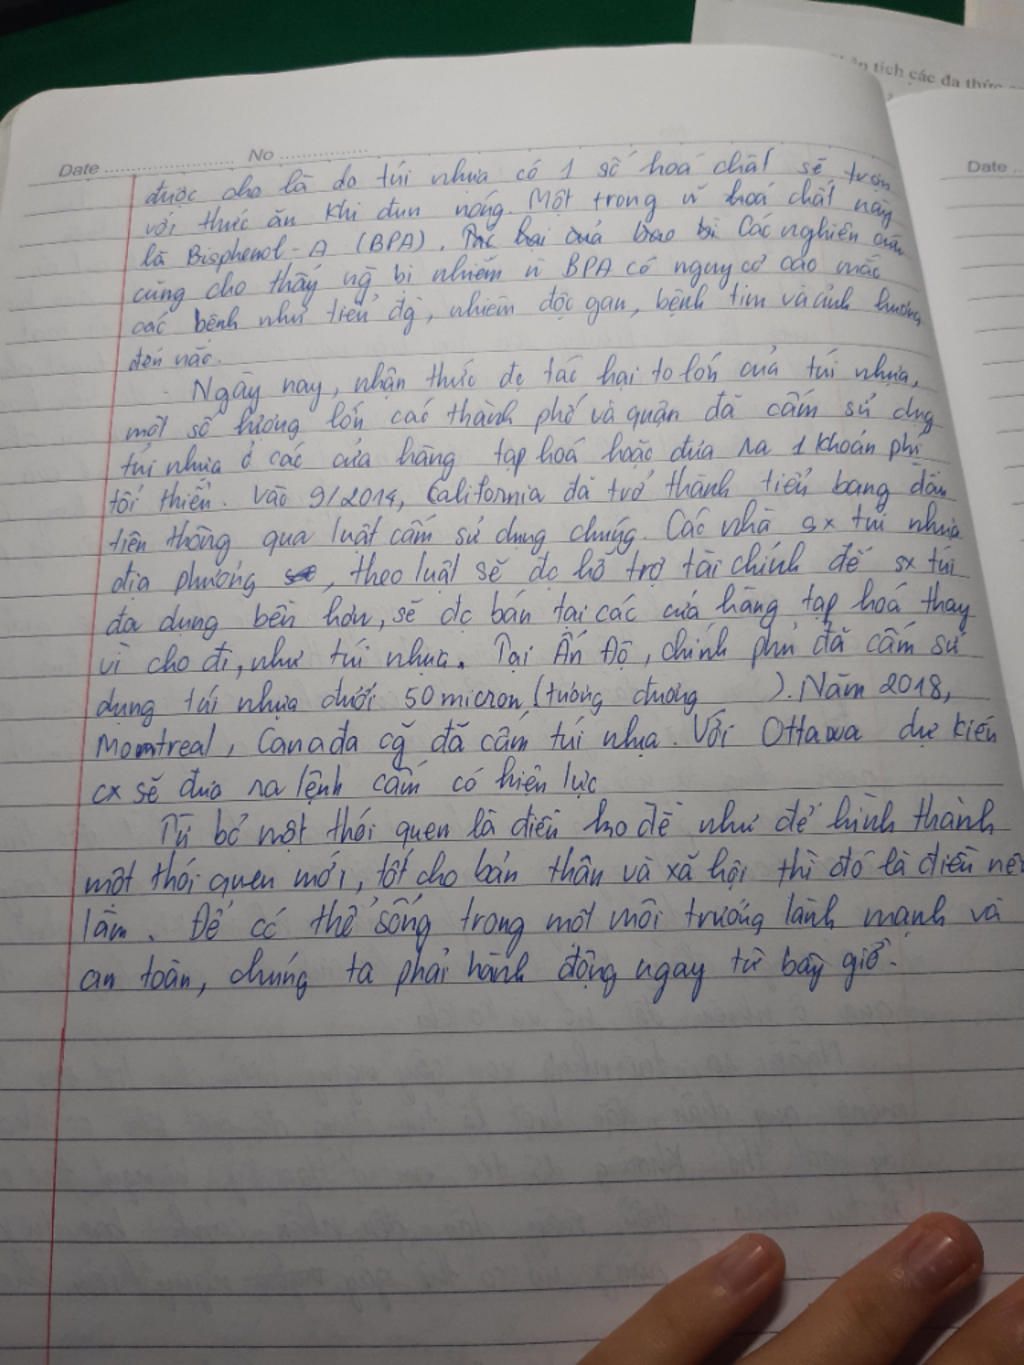 Phân tích các đa thức
Date No
Date
được cho là do túi nhựa có 1 số hoá chất sẽ trộn
với thức ăn khi đun nóng. Một trong n~ hoá chất này
là Bisphenol-A (BPA). Các nghiên cứu
cũng cho thấy ng` bị nhiễm n~ BPA có nguy cơ cao mắc
các bệnh như tiểu đg`, nhiễm độc gan, bệnh tim và ảnh hưởng
đến não.
Ngày nay, nhận thức đc tác hại to lớn của túi nhựa,
một số lượng lớn các thành phố và quận đã cấm sử dụng
túi nhựa ở các cửa hàng tạp hoá hoặc đưa ra 1 khoản phí
tối thiểu. Vào 9/2014, California đã trở thành tiểu bang đầu
tiên thông qua luật cấm sử dụng chúng. Các nhà sx túi nhựa
địa phương, theo luật sẽ đc hỗ trợ tài chính để sx túi
đa dụng bền hơn, sẽ đc bán tại các cửa hàng tạp hoá thay
vì cho đi, như túi nhựa. Tại Ấn Độ, chính phủ đã cấm sử
dụng túi nhựa dưới 50 micron (tương đương ). Năm 2018,
Montreal, Canada cg~ đã cấm túi nhựa. Với Ottawa dự kiến
cx sẽ đưa ra lệnh cấm có hiệu lực
Từ bỏ một thói quen là điều ko dễ như để hình thành
một thói quen mới, tốt cho bản thân và xã hội thì đó là điều nên
làm. Để có thể sống trong một môi trường lành mạnh và
an toàn, chúng ta phải hành động ngay từ bây giờ.